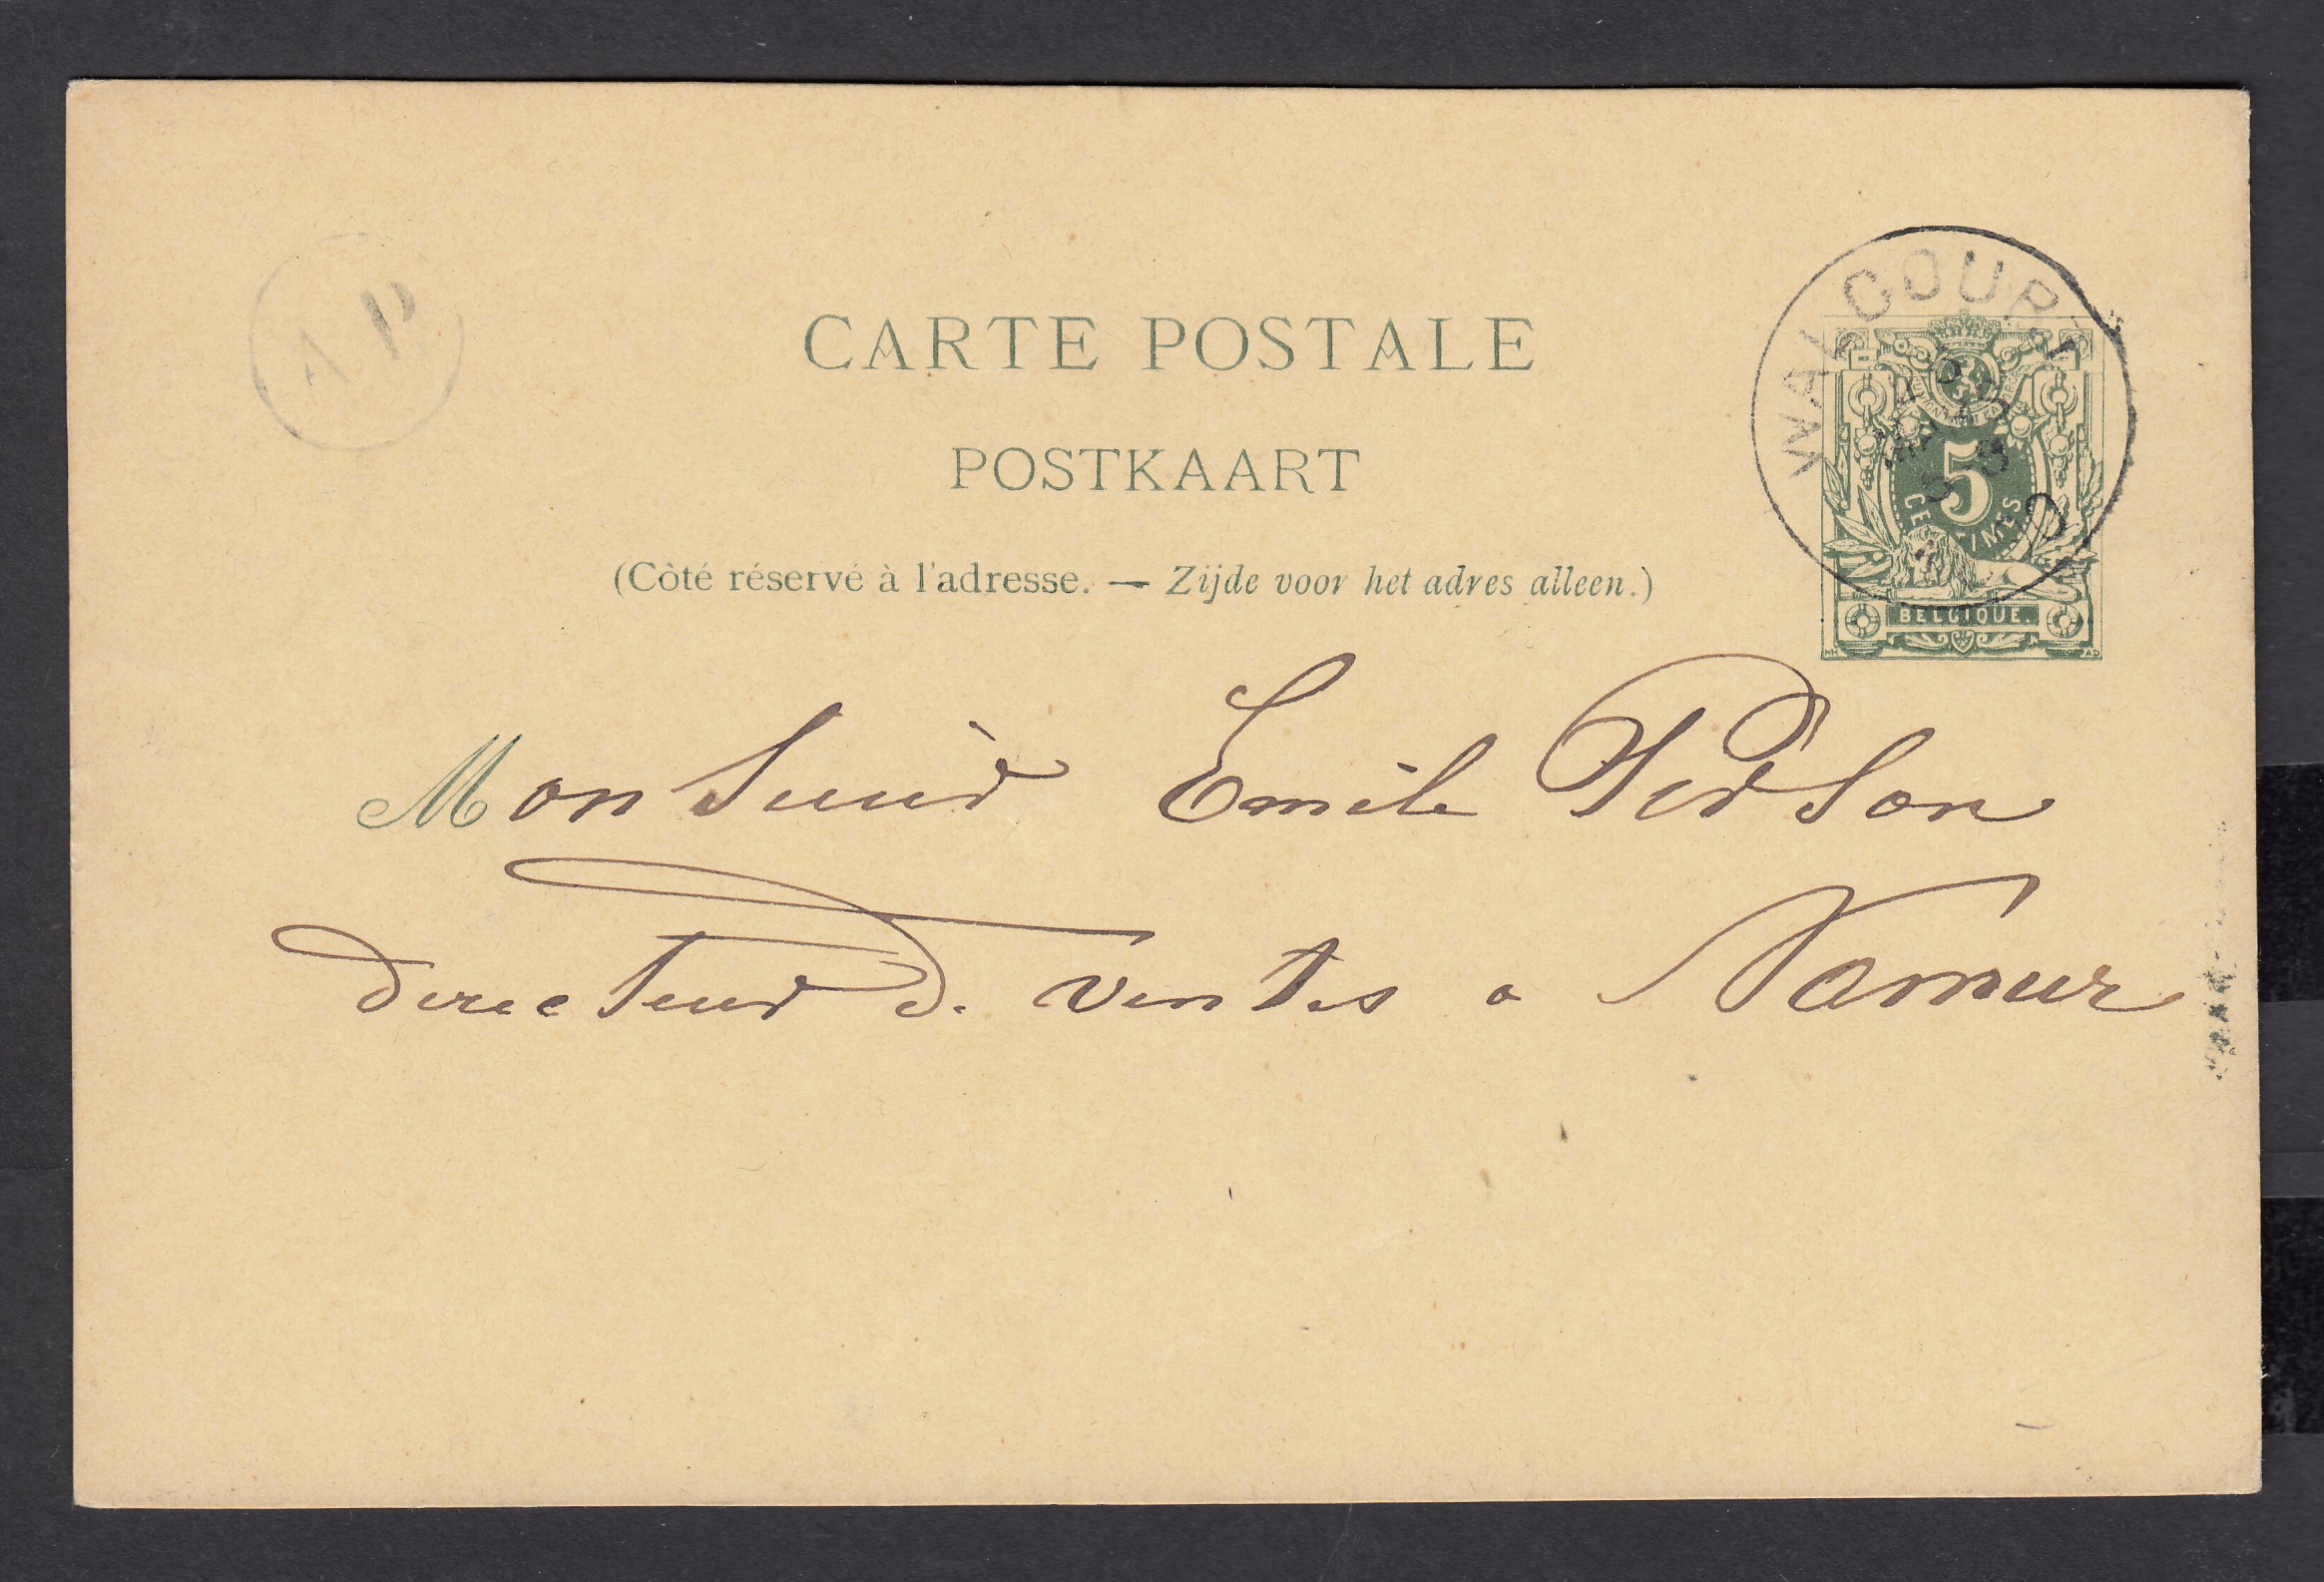 CARTE POSTALE
POSTKAART
(Côté réservé à l'adresse. — Zijde voor het adres alleen.)
WALCOURT
5
CENTIMES
BELGIQUE.
Monsieur Emile Pierson
directeur de ventes a Namur